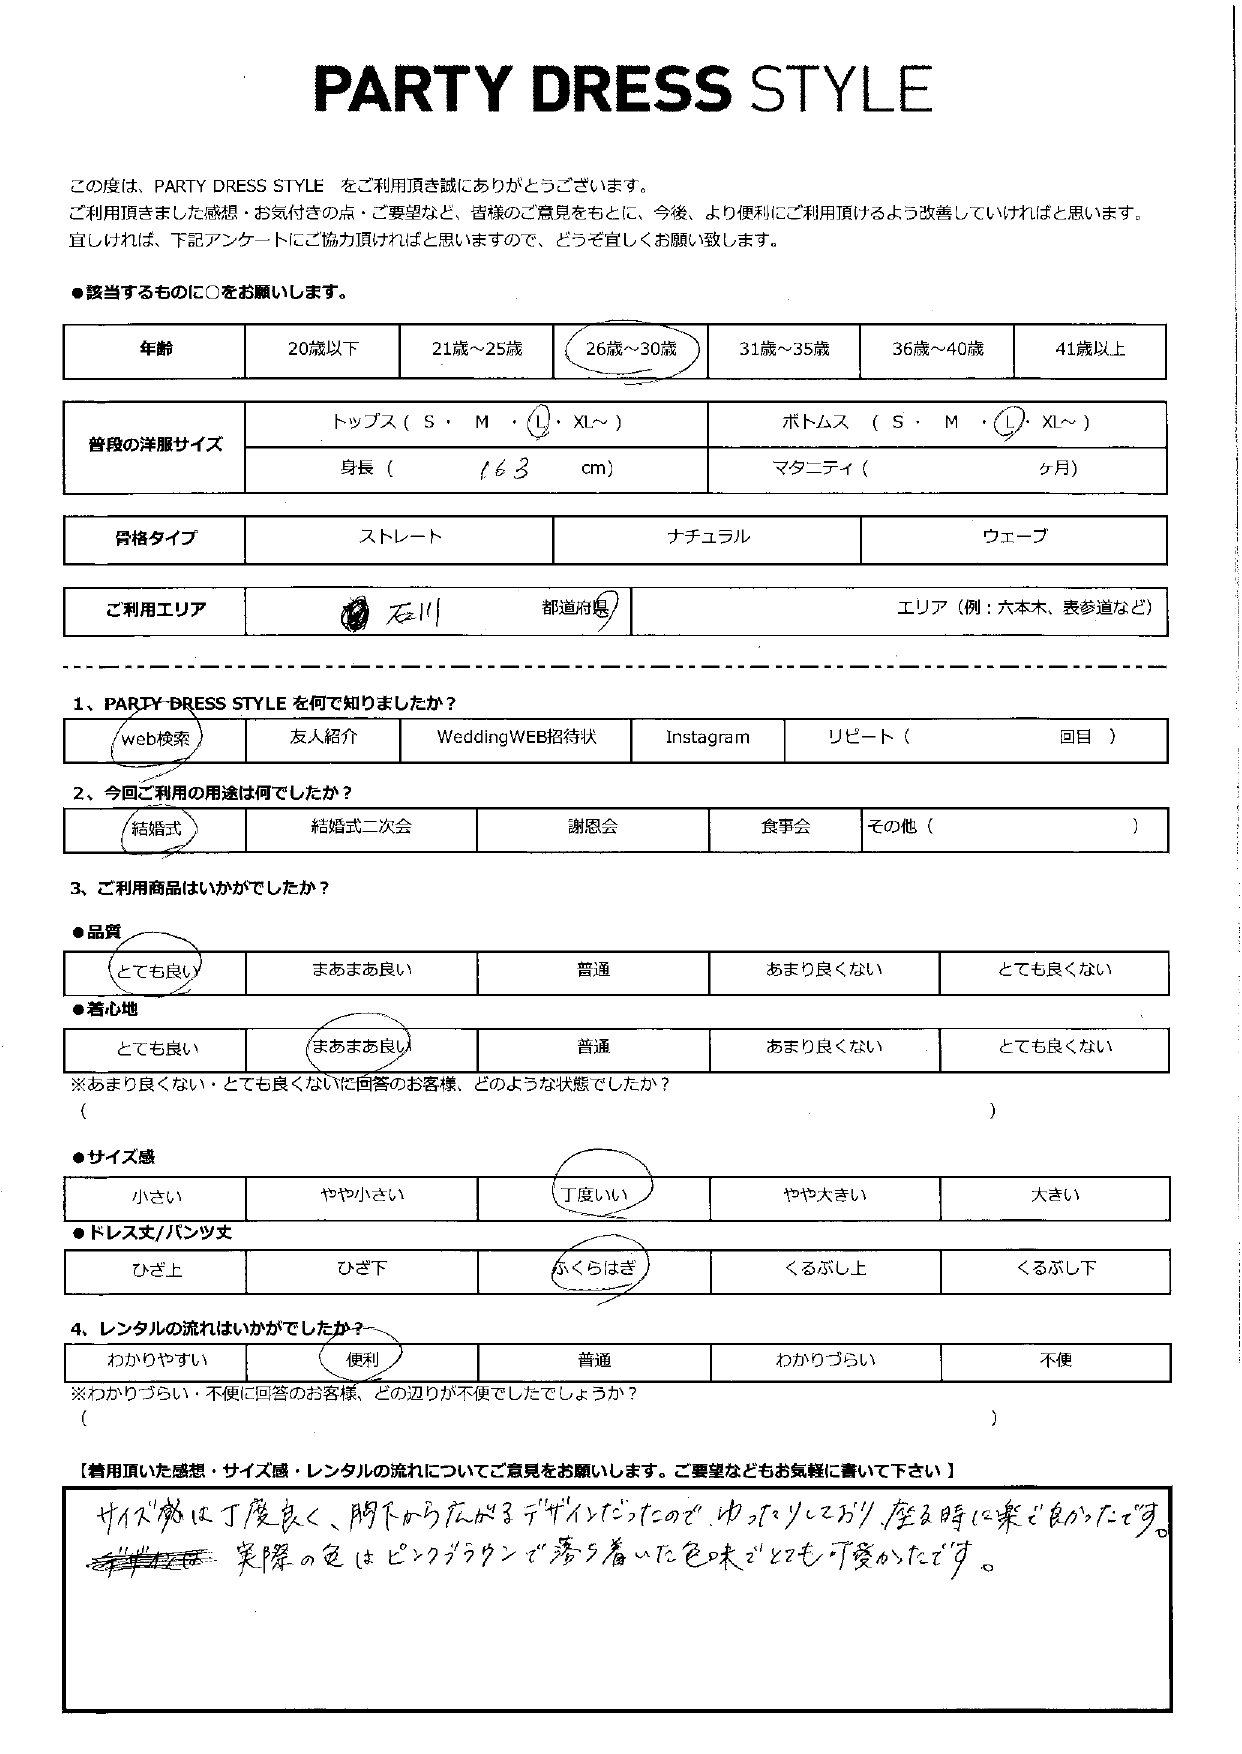 PARTY DRESS STYLE
この度は、PARTY DRESS STYLE をご利用頂き誠にありがとうございます。
ご利用頂きました感想・お気付きの点・ご要望など、皆様のご意見をもとに、今後、より便利にご利用頂けるよう改善していければと思います。
宜しければ、下記アンケートにご協力頂ければと思いますので、どうぞ宜しくお願い致します。
●該当するものに○をお願いします。
年齢 20歳以下 21歳～25歳 26歳～30歳 31歳～35歳 36歳～40歳 41歳以上
普段の洋服サイズ トップス ( S ・ M ・ L ・ XL～ ) ボトムス ( S ・ M ・ L ・ XL～ )
身長 ( 163 cm) マタニティ ( ヶ月)
骨格タイプ ストレート ナチュラル ウェーブ
ご利用エリア 石川 都道府県 エリア（例：六本木、表参道など）
1、PARTY DRESS STYLE を何で知りましたか？
web検索 友人紹介 WeddingWEB招待状 Instagram リピート（ 回目 ）
2、今回ご利用の用途は何でしたか？
結婚式 結婚式二次会 謝恩会 食事会 その他（ ）
3、ご利用商品はいかがでしたか？
●品質
とても良い まあまあ良い 普通 あまり良くない とても良くない
●着心地
とても良い まあまあ良い 普通 あまり良くない とても良くない
※あまり良くない・とても良くないに回答のお客様、どのような状態でしたか？
（ ）
●サイズ感
小さい やや小さい 丁度いい やや大きい 大きい
●ドレス丈/パンツ丈
ひざ上 ひざ下 ふくらはぎ くるぶし上 くるぶし下
4、レンタルの流れはいかがでしたか？
わかりやすい 便利 普通 わかりづらい 不便
※わかりづらい・不便に回答のお客様、どの辺りが不便でしたでしょうか？
（ ）
【着用頂いた感想・サイズ感・レンタルの流れについてご意見をお願いします。ご要望などもお気軽に書いて下さい】
サイズ感は丁度良く、胸下から広がるデザインだったので、ゆったりしており、座る時に楽で良かったです。
実際の色はピンクブラウンで落ち着いた色味でとても可愛かったです。